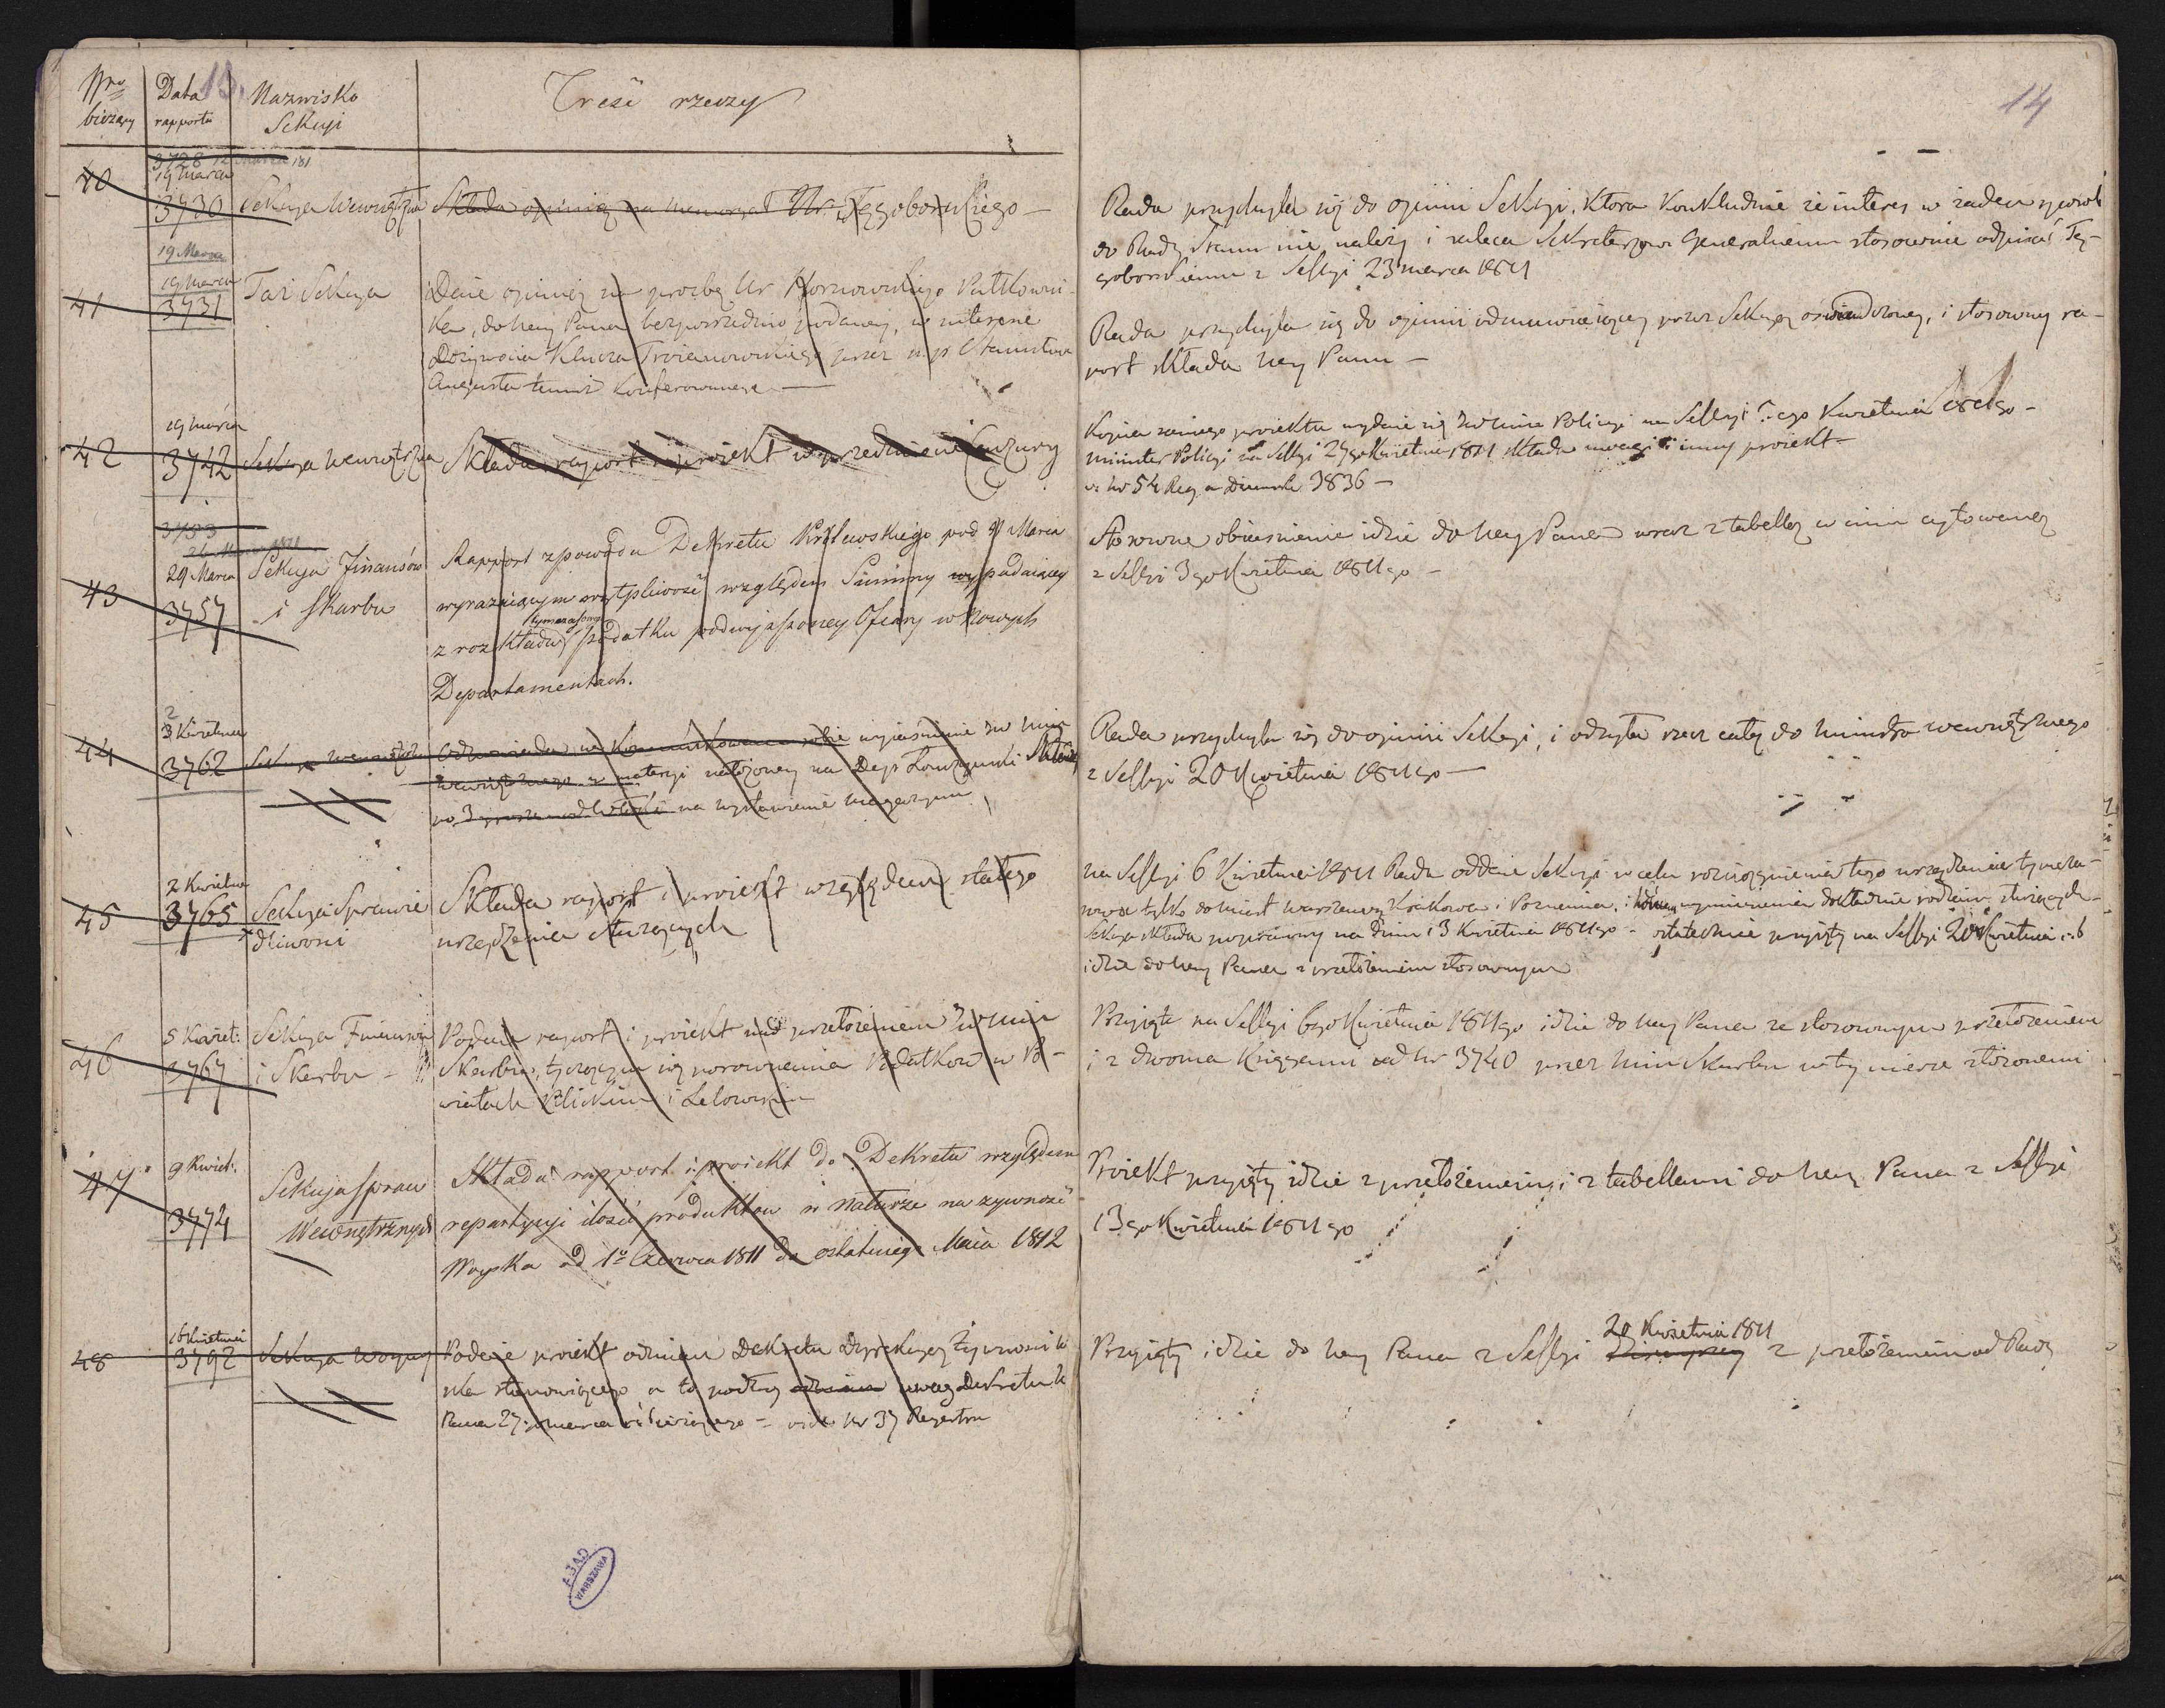 Nro bieżący
Data rapportu
Nazwisko Sekcyi
Treść rzeczy
13.
40
19 Marca
3730
Sekcya Wewnętrzna
Składa opinią na memoryał Ur. Tęgoborskiego —
19 Marca
41
19 Marca
3731
Taż Sekcya
Daie opinią na prozbę Ur
Pułkowni-
ka, do Ney Pana bezpośrednio podaney, w interesie
Dożywocia Klucza Troianowskiego przez n. p. Stanisława
Augusta temuż konferowanego —
42
19 marca
3742
Sekcya Wewnętrzna
Składa raport i proiekt w przedmiocie Cenzury
3753
43
29 Marca
3757
Sekcya Finansów
i Skarbu
Rapport z powodu Dekretu Królewskiego pod 9 Marca
wyrażaiącym wątpliwość względem Summy wypadaiącey
z rozkładu tymczasowego podatku podwyższoney Ofiary w nowych
Departamentach.
44
2 Kwietnia
3762
Sekcya Wewnętrzna
Odpowiada na
wyiaśnienie JW Min
Wewnętrznego w materyi nałożoney na Dep Łomżyński Składki
po 3 grosze
na wystawienie magazynu
45
2 Kwietnia
3765
Sekcya Sprawie
dliwosci
Składa raport i proiekt względem stałego
urządzenia służących
46
5 Kwiet:
3767
Sekcya Finansów
i Skarbu —
Podaie raport i proiekt nad przełożeniem JW Min
Skarbu, tyczącym się porownania Podatkow w Po-
wiatach Pilickim i Lelowskim
47
9 Kwiet:
3774
Sekcya spraw
Wewnętrznych
Składa rapport i proiekt do Dekretu względem
repartycyi ilości produktow w naturze na żywność
Woyska od 1o Czerwca 1811 do ostatniego Maia 1812
48
16 Kwietnia
3792
Sekcya Woyny
Podaie proiekt odmian Dekretu Dyrekcyą Żywności
stanowiącego a to podług uwag Dekretu K
Pana 27 marca r. b.
— vide Nr 37 Regestru
AGAD
WARSZAWA
14
Rada przychyla się do opinii Sekcyi, ktora konkluduie że interes w żaden sposob
do Rady Stanu nie należy i zaleca Sekretarzowi Generalnemu stosownie odpisać Tę-
goborskiemu z Sessyi 23 marca 1811
Rada przychyla się do opinii odmawiaiącey przez Sekcyą oświadczoney, i stosowny ra-
port składa Ney Panu —
Kopia ninieyszego proiektu wydaie się JW Mina Policyi na Sessyi
Kwietnia 1811go —
Minister Policyi na Sessyi 27go Kwietnia 1811 składa uwagi i inny proiekt —
v. Nr 54 Reg a Dziennik 3836 —
Stosowne obiaśnienie idzie do Ney Pana wraz z tabellą w nim cytowaną
z Sessyi 3go Kwietnia 1811go —
Rada przychyla się do opinii Sekcyi, i odsyła rzecz całą do Ministra Wewnętrznego
z Sessyi 20 Kwietnia 1811go —
na Sessyi 6 Kwietnia 1811 Rada oddaie Sekcyi w celu rozciągnienia tego urządzenia tymcza-
sowie tylko do miast Warszawy Krakowa i Poznania, i
wymienienia dokładnie rodzaiu służących —
Sekcya składa poprawny na dniu 13 Kwietnia 1811go — ostatecznie przyięty na Sessyi 20 Kwietnia r. b
idzie do Ney Pana z przełożeniem stosownym
Przyięte na Sessyi 6go Kwietnia 1811go idzie do Ney Pana ze stosownym przełożeniem
i z dwoma Księgami od Nr 3740 przez Min Skarbu w tey mierze złożonemi
Proiekt przyięty idzie z przełożeniem i z tabellami do Ney Pana z Sessyi
13go Kwietnia 1811go
20 Kwietnia 1811
Przyięty idzie do Ney Pana z Sessyi z przełożeniem od Rady